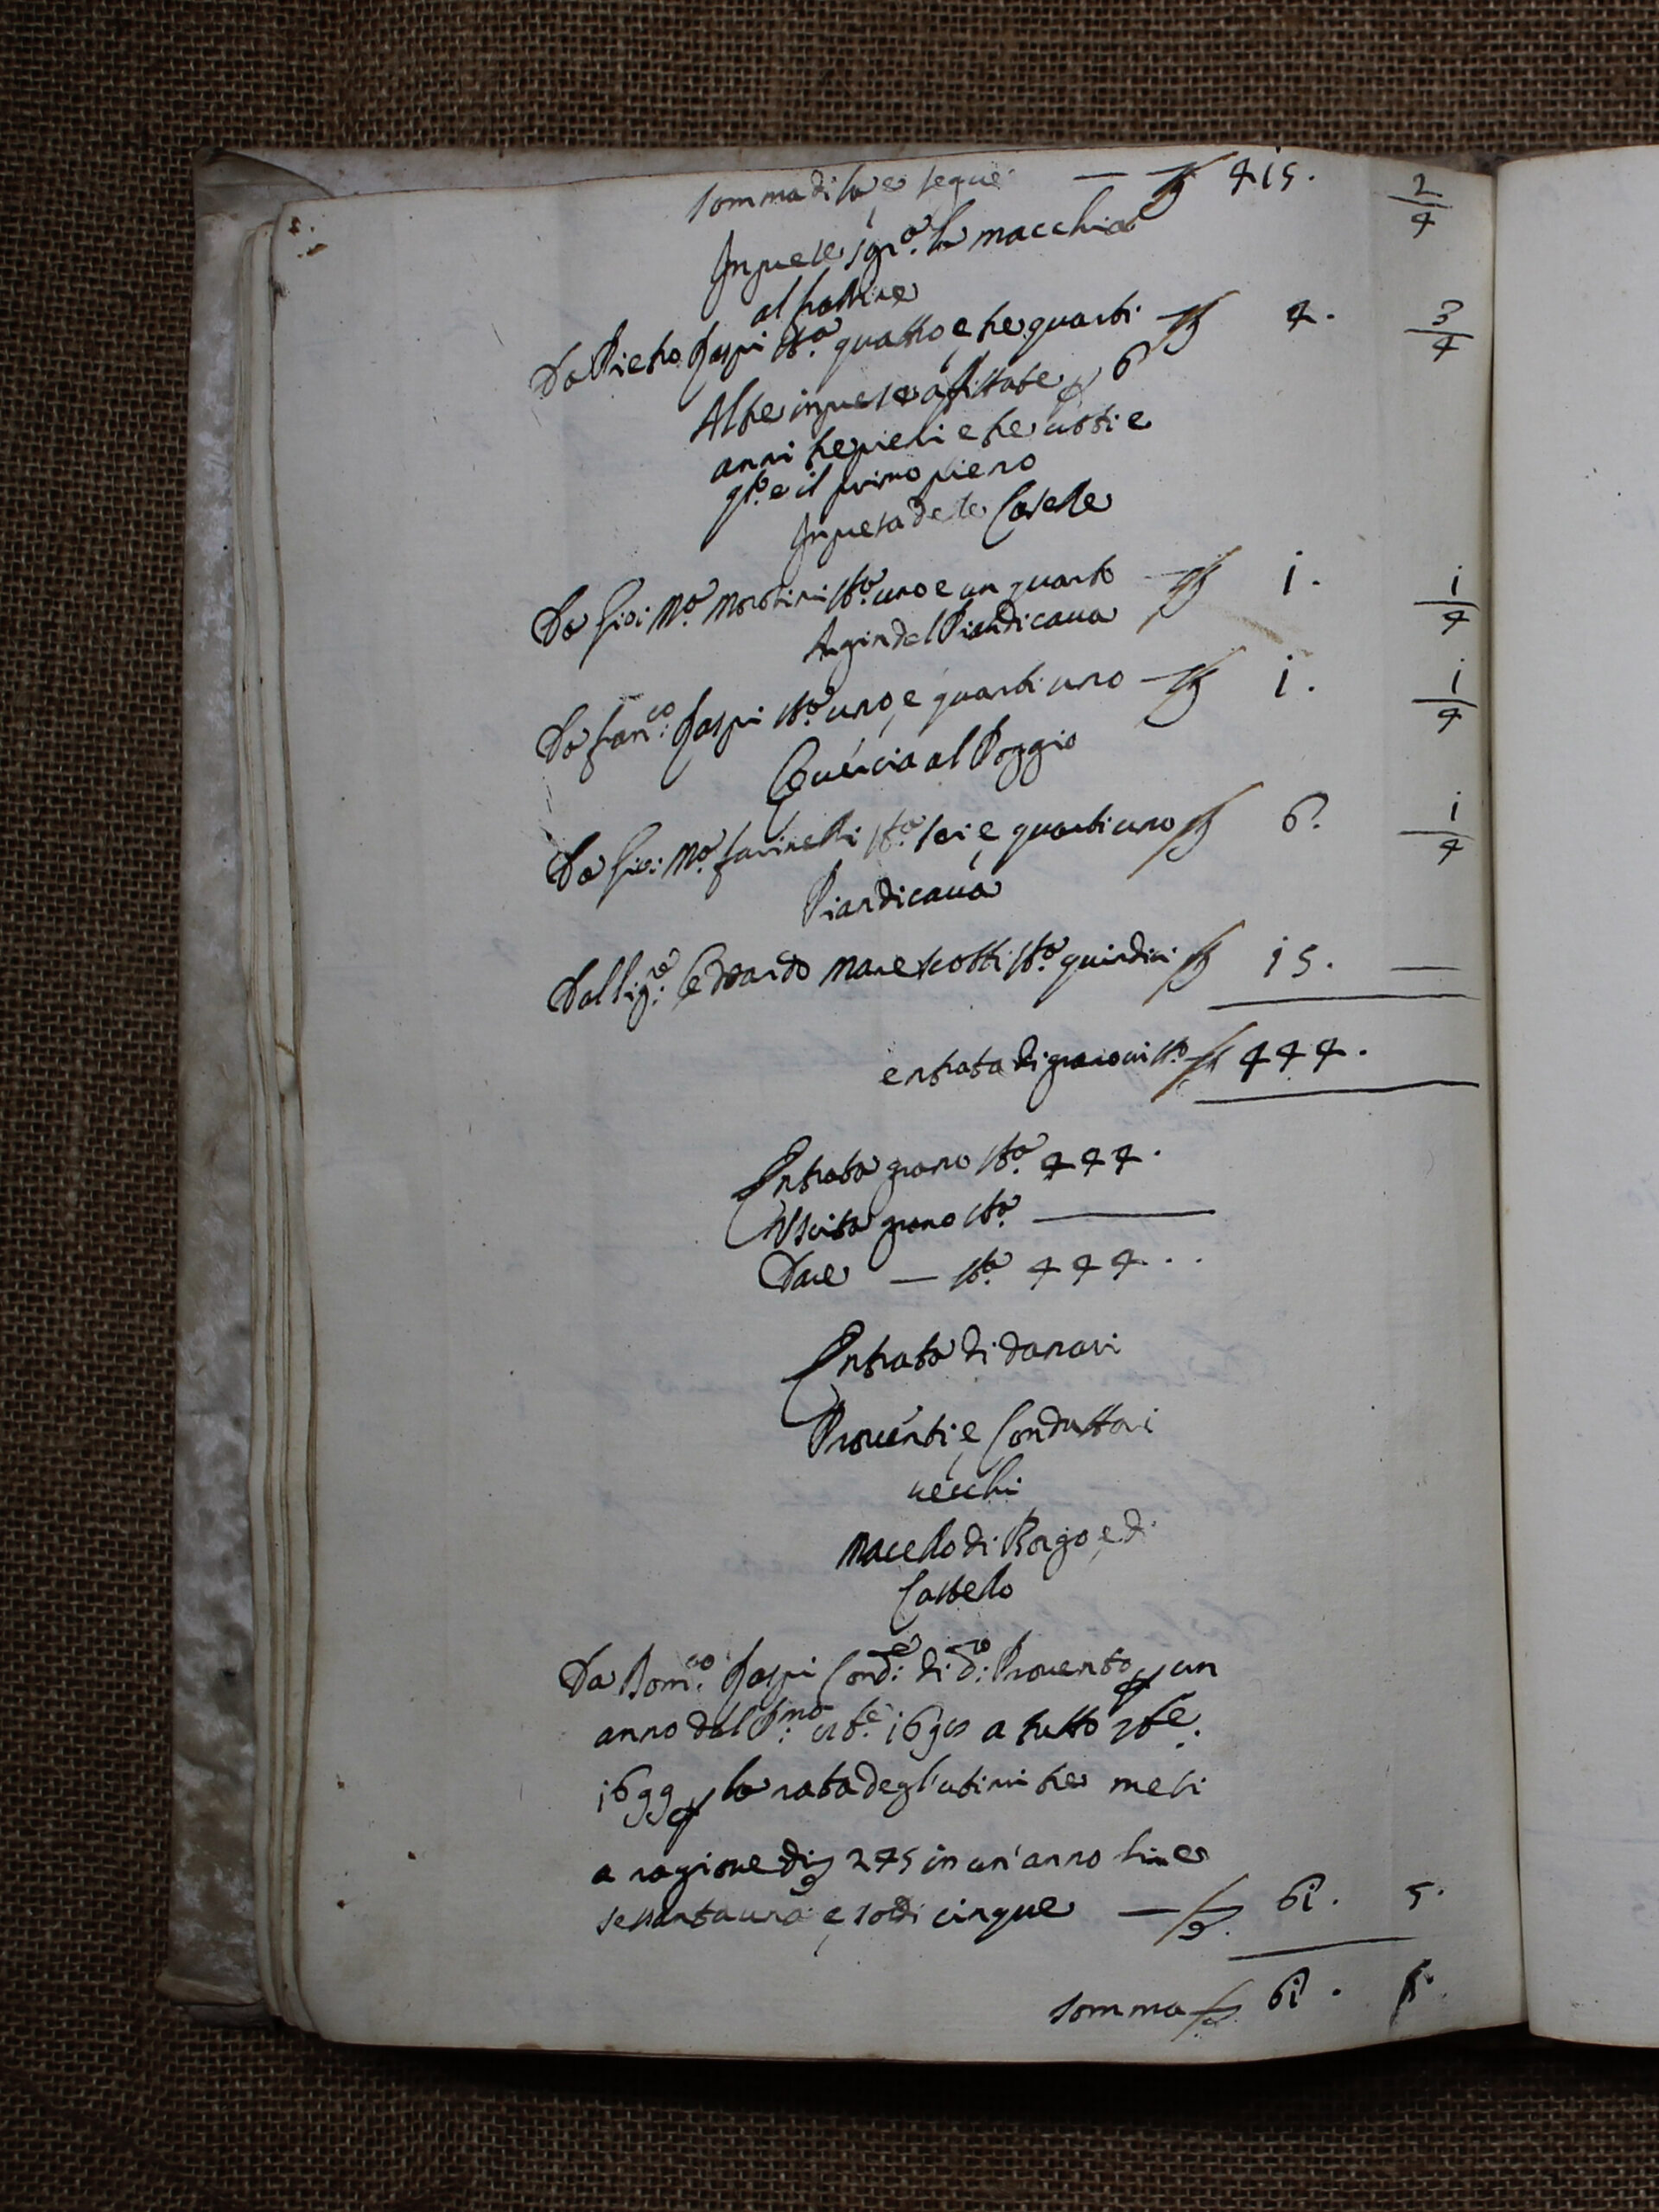 somma di là, e segue — st 415. 2/4
Imprese sopra la macchia
al pallise
Da Pietro Paspi sta. quattro e tre quarti st 4. 3/4
Altre imprese affittate p 6
anni tre pieni e tre uoti e
qto. e il primo pieno
Impresa de le Caselle
Da Gio: Ma. Martini sta. uno e un quarto — st 1. 1/4
Argin del Piandicaua
Da Fran.co Paspi sta. uno, e quarti uno — st 1. 1/4
Quercia al Poggio
Da Gio: Ma. farinelli sta. sei e quarti uno st 6. 1/4
Piandicaua
Dal Sig.re Edoardo Marescotti sta. quindici st 15. —
entrata di grano in sta. st 444.
Entrata grano sta. 444.
Uscita grano sta. —
Dare — sta. 444..
Entrata di danari
Prouenti e Conduttori
uecchi
Macello di Borgo e di
Castello
Da Dom.co Paspi Cond.e di d.o Prouento p un
anno dal P.mo 8b.e 1698 a tutto 7b.e
1699 p la rata degl'utimi tre mesi
a ragione di 245 in un'anno lire
sessantauna e soldi cinque — 61. 5.
somma 61. 5.